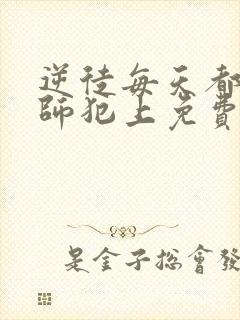 逆徒每天都
師犯上免費
是金子總會發